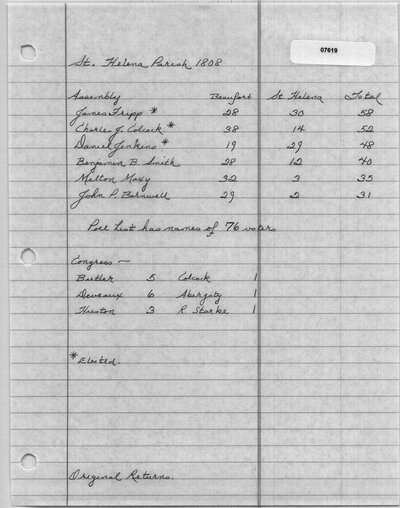 07619
St. Helena Parish 1808
Assembly Beaufort St. Helena Total
James Fripp * 28 30 58
Charles J. Colcock * 38 14 52
Daniel Jenkins * 19 29 48
Benjamin B. Smith 28 12 40
Milton Maxy 32 3 35
John P. Barnwell 29 2 31
Poll list has names of 76 voters
Congress —
Butler 5 Colcock 1
Deveaux 6 1
3 R Starke 1
*Elected.
Original Returns.